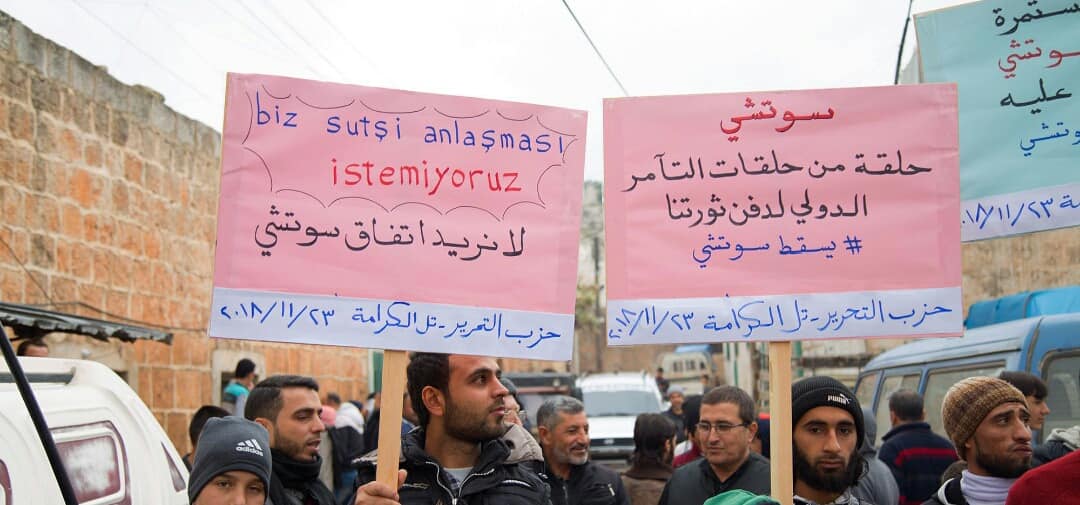 biz sutşi anlaşması
istemiyoruz
لا نريد اتفاق سوتشي
حزب التحرير - تل الكرامة ٢٠١٨/١١/٢٣
سوتشي
حلقة من حلقات التآمر
الدولي لدفن ثورتنا
# يسقط سوتشي
حزب التحرير - تل الكرامة ٢٠١٨/١١/٢٣
ستمرة
سوتشي
عليه
سوتشي
مة ٢٠١٨/١١/٢٣
adidas
PUMA